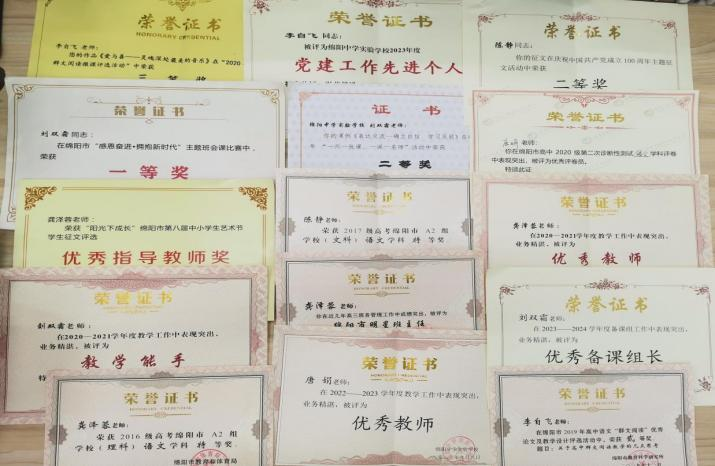 荣誉证书
HONORARY CREDENTIAL
李自飞 老师:
您的作品《爱与善——灵魂深处最美的音乐》在“2020
群文阅读微课评选活动”中荣获
二等奖
荣誉证书
李自飞 同志:
被评为绵阳中学实验学校2023年度
党建工作先进个人
荣誉证书
陈静 同志:
你的征文在庆祝中国共产党成立100周年主题征
文活动中荣获
二等奖
荣誉证书
刘双霜 同志:
在绵阳市“感恩奋进·拥抱新时代”主题班会课比赛中,
荣获
一等奖
证书
绵阳中学实验学校 刘双霜老师:
二等奖
荣誉证书
老师:
你在绵阳市高中2020级第二次诊断性测试语文学科评卷
中表现突出,被评为优秀评卷员。
特颁此证
龚泽蓉老师:
荣获“阳光下成长”绵阳市第八届中小学生艺术节
学生征文评选
优秀指导教师奖
荣誉证书
陈静 老师:
荣获2017级高考绵阳市A2组
学校(文科)语文学科 特等奖
荣誉证书
龚泽蓉 老师:
在2020—2021学年度教学工作中表现突出,
业务精湛,被评为
优秀教师
荣誉证书
刘双霜 老师:
在2020—2021学年度教学工作中表现突出,
业务精湛,被评为
教学能手
特
荣誉证书
龚泽蓉 老师:
你在近几年高三班务管理工作中成绩突出,被评为
绵阳市明星班主任
荣誉证书
刘双霜 老师:
在2023—2024学年度备课组工作中表现突出,
业务精湛,被评为
优秀备课组长
荣誉证书
龚泽蓉 老师:
荣获2016级高考绵阳市A2组
学校(理科)语文学科 特等奖
绵阳市教育和体育局
荣誉证书
唐娟 老师:
在2022—2023学年度教学工作中表现突出,
业务精湛,被评为
优秀教师
荣誉证书
李自飞 老师:
在绵阳市2019年高中语文“群文阅读”优秀
论文及教学设计评选活动中,荣获贰等奖。
题目:关于高中群文阅读教学的几点思考
绵阳市教育科学研究所